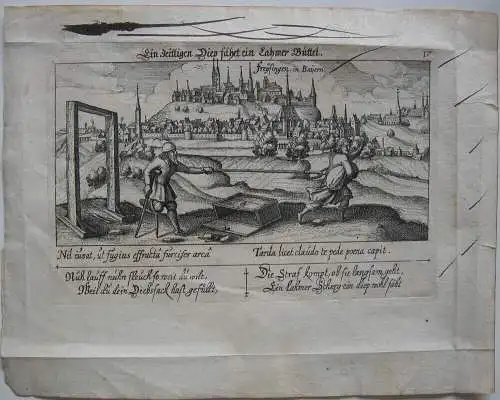 Ein zeittigen Diep fahet ein Lahmer Büttel.
Freysingen in Bayern
Nil iuvat, ut fugias effracta furcifer arca
Tarda licet claudo te pede poena capit.
Nuhn lauff nuhn so weit du wilt.
Weil du dein Diebssack hast gefüllt.
Die Straf kompt, ob sie langsam geht.
Ein lahmer Scherg ein diep wohl fäht